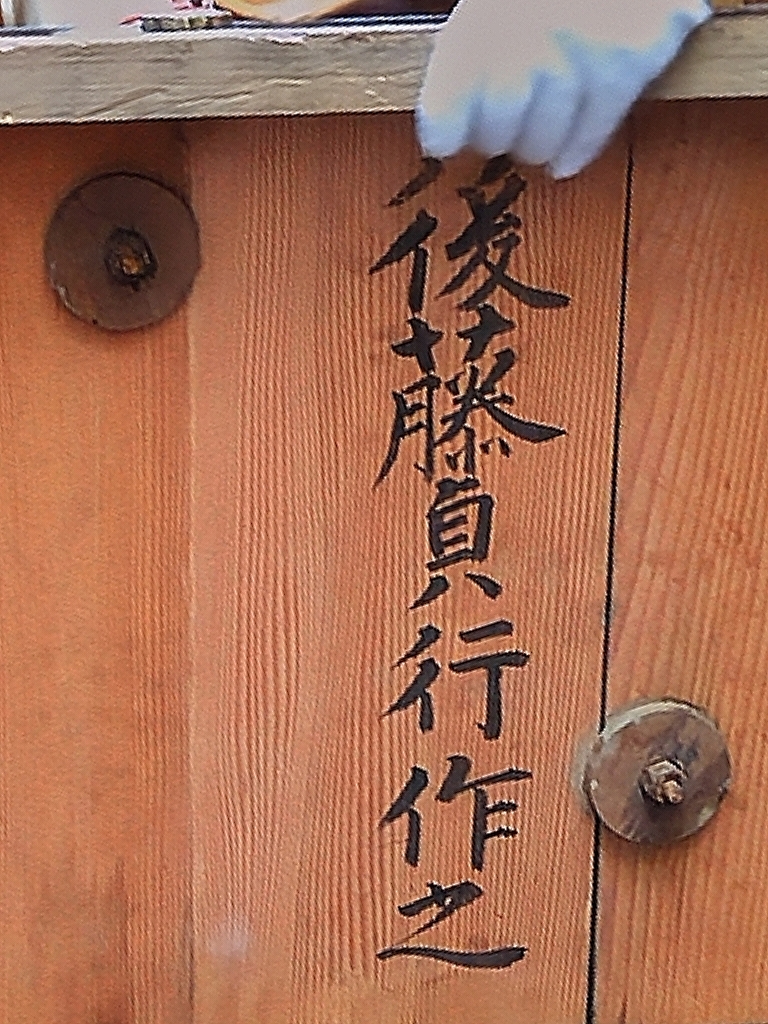 後藤貞行作之